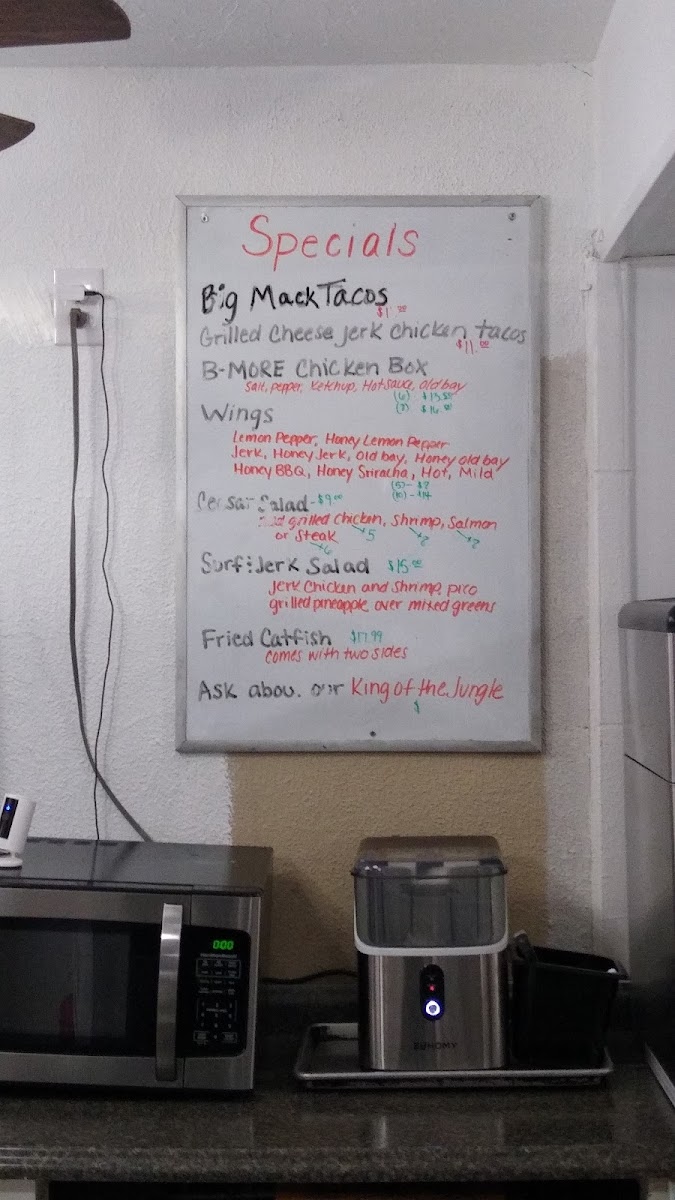 Specials
Big Mack Tacos
Grilled Cheese Jerk chicken tacos
$11.00
B-MORE Chicken Box
Salt, pepper, Ketchup, Hot sauce, old bay
(6)
$14.00
Wings
Lemon Pepper, Honey Lemon Pepper
Jerk, Honey Jerk, Old bay, Honey old bay
Honey BBQ, Honey Sriracha, Hot, Mild
(10) - $14
Salad - $9.00
grilled chicken, Shrimp, Salmon
or Steak 5
6
Surf & Jerk Salad $15.00
Jerk Chicken and Shrimp, pico
grilled pineapple over mixed greens
Fried Catfish $17.99
comes with two sides
Ask our King of the Jungle
$
000